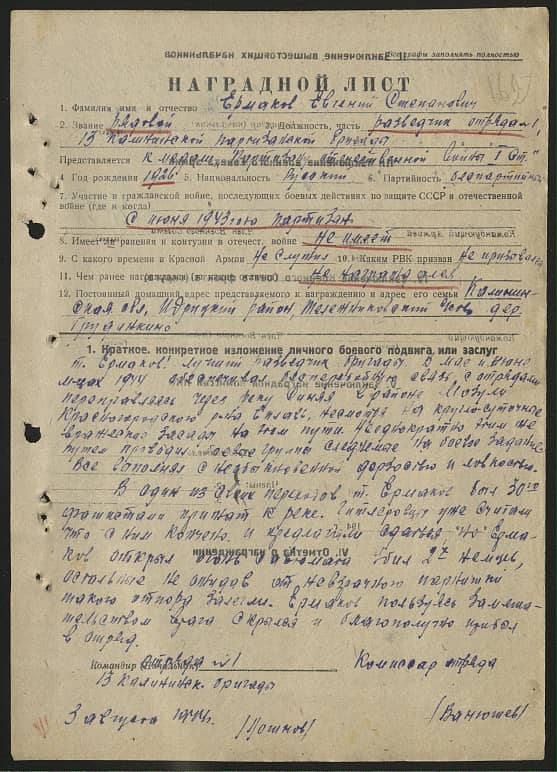 Все графы заполнять полностью
НАГРАДНОЙ ЛИСТ
1. Фамилия имя и отчество Ермаков Евгений Степанович
2. Звание рядовой 3. Должность, часть разведчик отряда №1,
13 Калининской Партизанской бригады
Представляется к медали "Партизану отечественной войны I ст."
4 Год рождения 1926 5. Национальность Русский 6. Партийность беспартийный
7. Участие в гражданской войне, последующих боевых действиях по защите СССР и отечественной
войне (где и когда)
С июня 1943 года партизан
8. Имеет ли ранения и контузии в отечест. войне Не имеет
9. С какого времени в Красной Армии Не служил 10. Каким РВК призван не призывался
11. Чем ранее награжден (за какие отличия) Не награждался
12. Постоянный домашний адрес представляемого к награждению и адрес его семьи Калинин-
ская обл, Идрицкий район, дер.
1. Краткое, конкретное изложение личного боевого подвига, или заслуг
т. Ермаков лучший разведчик бригады. В мае и июне
м-цах 1944 связь с отрядами
переправляясь через реку Синяя в районе
Красногородского р-на несмотря на круглосуточные
вражеские засады на этом пути. Неоднократно этим же
путем проводил боевые группы следуемые на боевое задание.
Все выполнял с необыкновенной дерзостью и ловкостью.
В один из таких переходов т. Ермаков был 30ю
фашистами прижат к реке. Гитлеровцы уже считали
что с ним кончено и предложили сдаться. Но Ерма-
ков открыл огонь из автомата убил 2х немцев,
остальные не ожидав от невзрачного парнишки
такого отпора залегли. Ермаков пользуясь замеша-
тельством врага скрылся и благополучно прибыл
в отряд.
Командир отряда №1 Комиссар отряда
13 Калининск. бригады
3 августа 1944г. /Ванюшев/